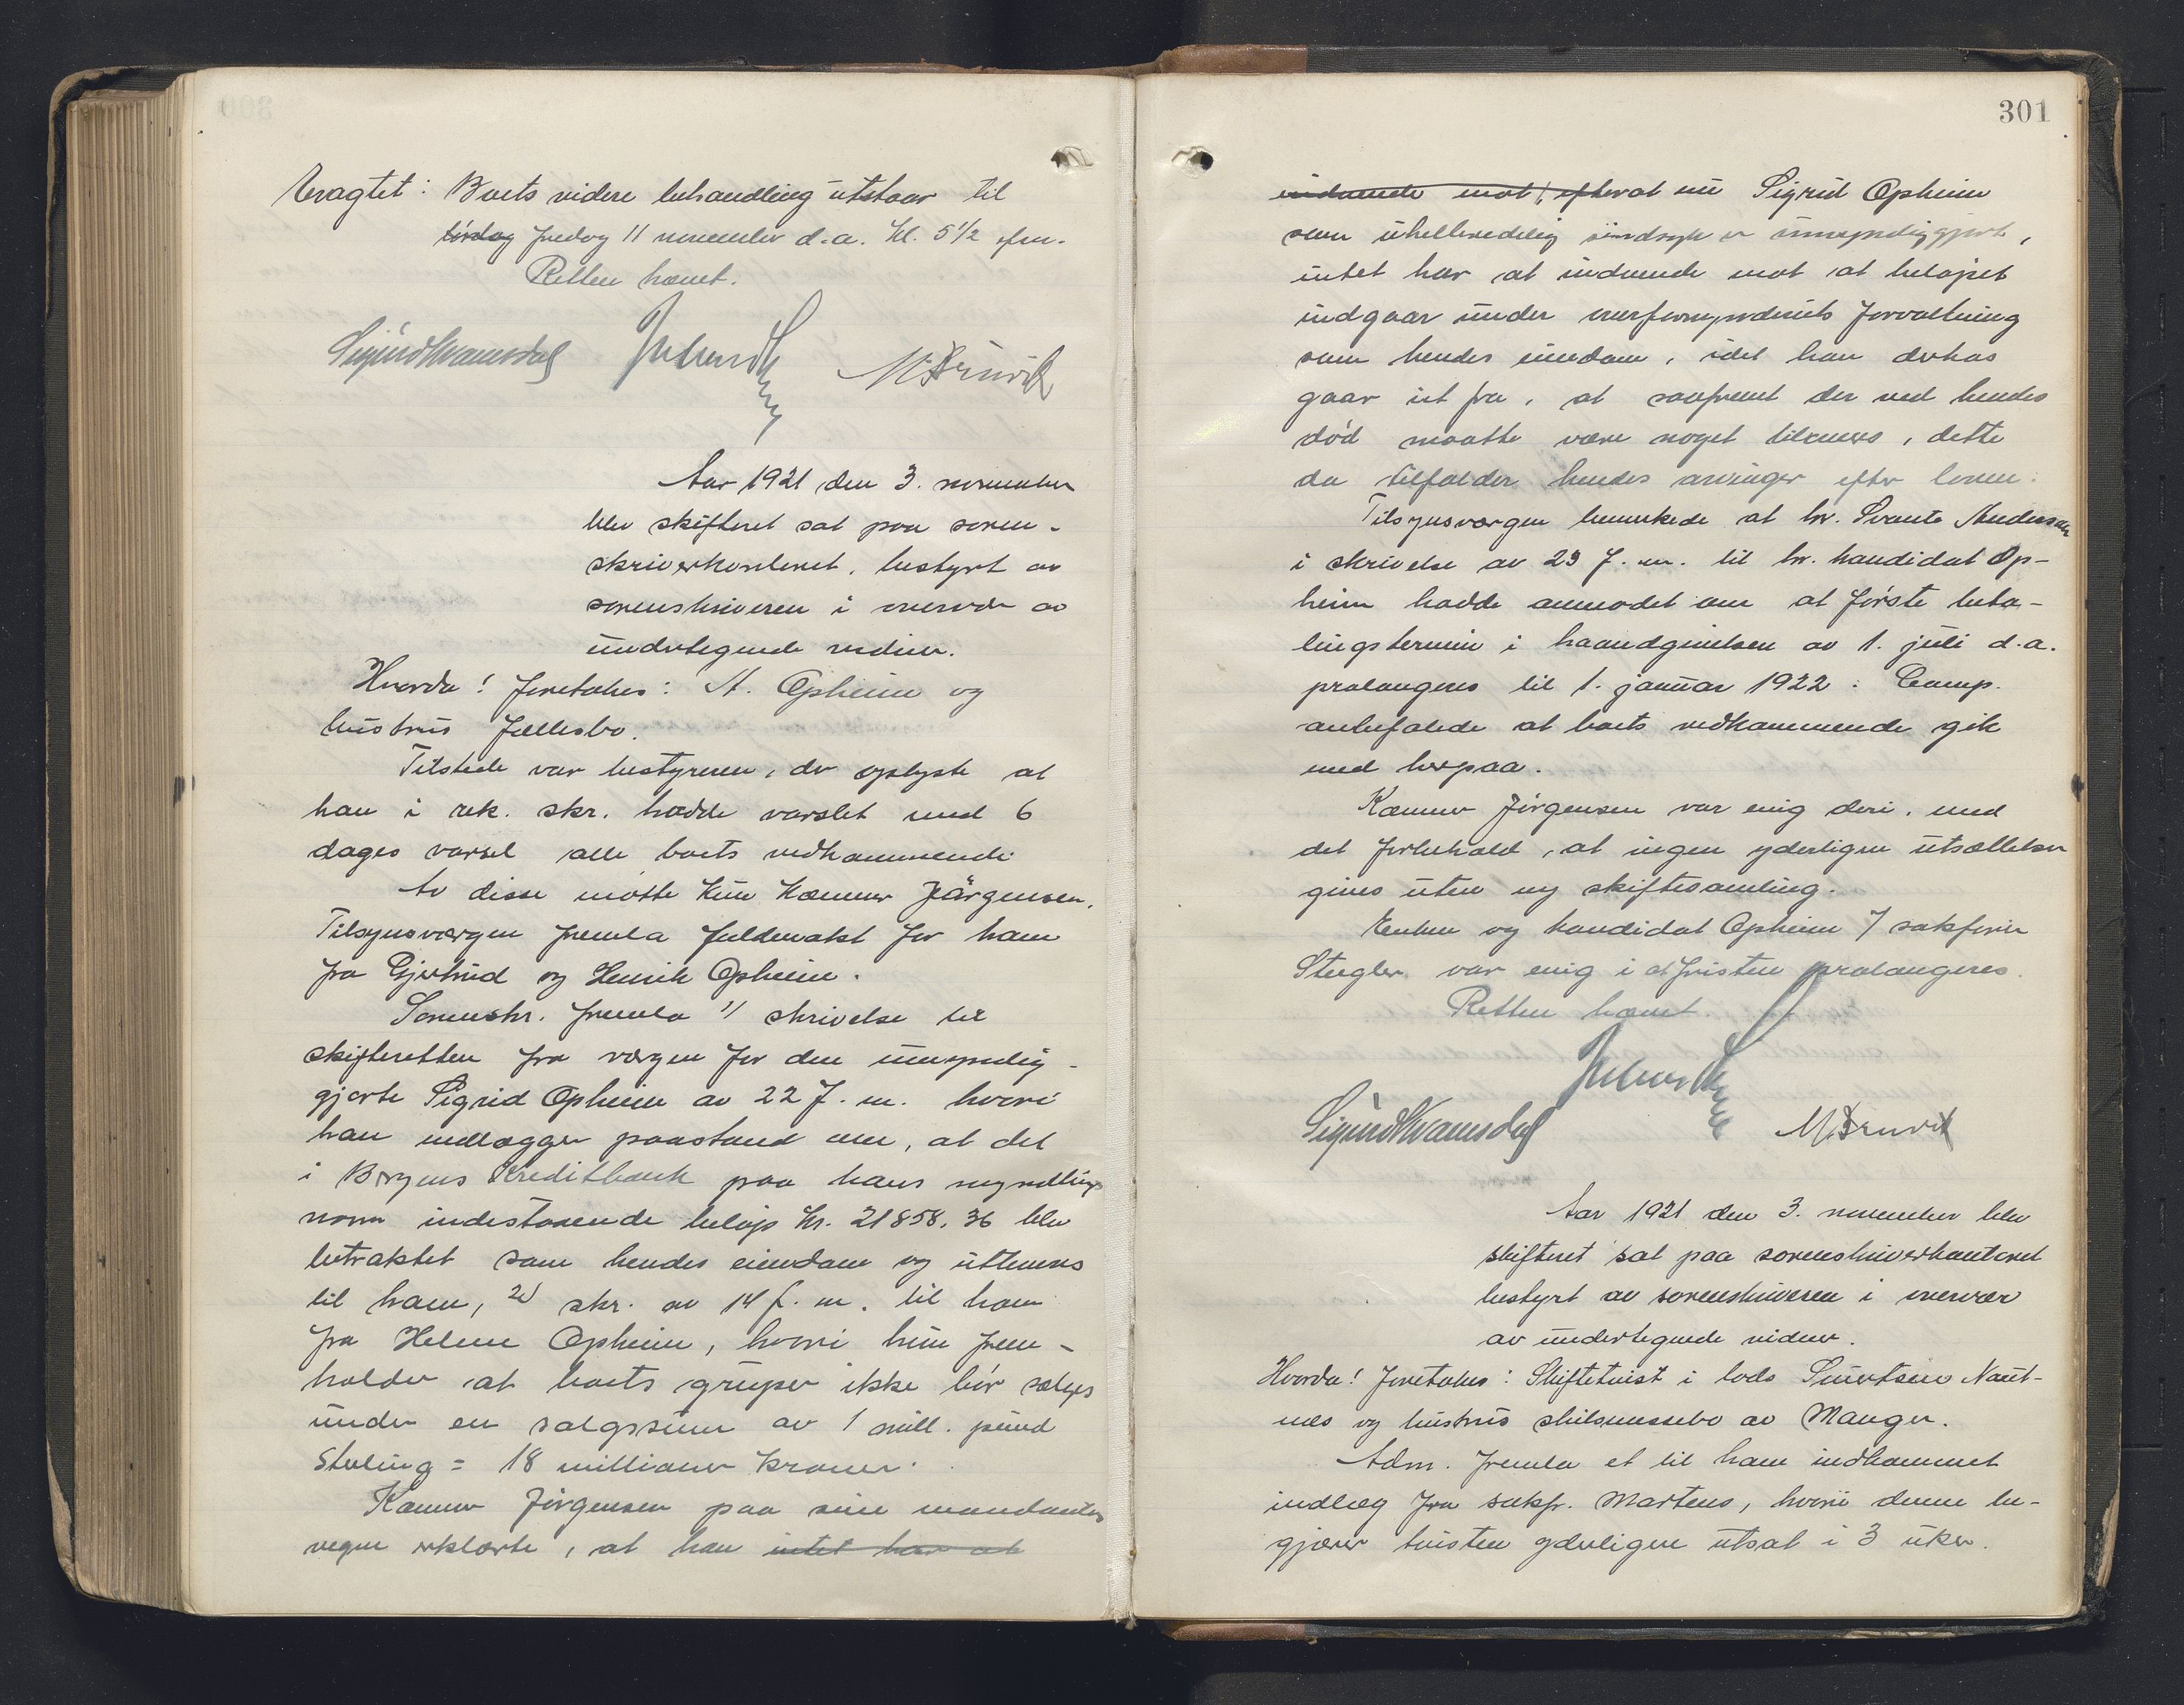 Eragtet: Boets videre behandling utstaar til
tirsdag fredag 11 november d.a. kl. 5 1/2 efm.
Retten hævet.
Sigurd Kvamsdal
Aar 1921 den 3. november
blev skifteret sat paa soren-
skriverkontoret, bestyrt av
sorenskriveren i overvær av
undertegnede vidner.
Hvorda! foretokes: A. Opheim og
hustrus fællesbo.
Tilstede var bestyreren, der oplyste at
han i rek. skr. hadde varslet med 6
dages varsel alle boets vedkommende
Av disse møtte kun Kæmner Jörgensen.
Tilsynsværgen fremla fuldmakt for ham
fra Gjertrud og Henrik Opheim.
Sorenskr. fremla 1/ skrivelse til
skifteretten fra værgen for den umyndig-
gjorte Sigrid Opheim av 22 f.m. hvori
han nedlægger paastand om, at det
i Bergens Kreditbank paa hans myndlings
navn indestaaende beløp kr. 21858,36 blev
betraktet som hendes eiendom og utleveres
til ham, 2/ skr. av 14 f.m. til ham
fra Helene Opheim, hvori hun frem-
holder at boets gruper ikke bør sælges
under en salgssum av 1 mill. pund
Sterling = 18 millioner kroner.
Kæmner Jörgensen paa sine mandanters
vegne erklærte, at han intet har at
301
indvende mot, efterat nu Sigrid Opheim
som uhelbredelig sindssyk er umyndiggjort,
intet har at indvende mot at beløpet
indgaar under overformynderiets forvaltning
som hendes eiendom, idet han derhos
gaar ut fra, at saafremt der ved hendes
død maatte være noget tilovers, dette
da tilfalder hendes arvinger efter loven.
Tilsynsværgen bemerkede at hr. Svante Anderson
i skrivelse av 23 f.m. til hr. kandidat Op-
heim hadde anmodet om at første beta-
lingstermin i haandgivelsen av 1. juli d.a.
prolongeres til 1. januar 1922. Comp.
anbefalede at boets vedkommende gik
med herpaa.
Kæmner Jörgensen var enig deri, med
det forbehold, at ingen yderligere utsættelser
gives uten ny skiftesamling.
Enken og kandidat Opheim v/ sakfører
Stegler var enig i at fristen prolongeres.
Retten hævet.
Sigurd Kvamsdal
Aar 1921 den 3. november blev
skifteret sat paa sorenskriverkontoret
bestyrt av sorenskriveren i overvær
av undertegnede vidner.
Hvorda! foretokes: Skiftetvist i lods Sivertsen Naut-
næs og hustrus skilsmissebo av Manger.
Adm. fremla et til ham indkommet
indlæg fra sakfr. Martens, hvori denne be-
gjærer tvisten yderligere utsat i 3 uker.